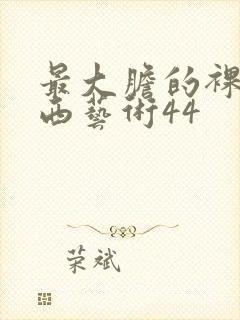 最大膽的裸
西藝術44
荣斌